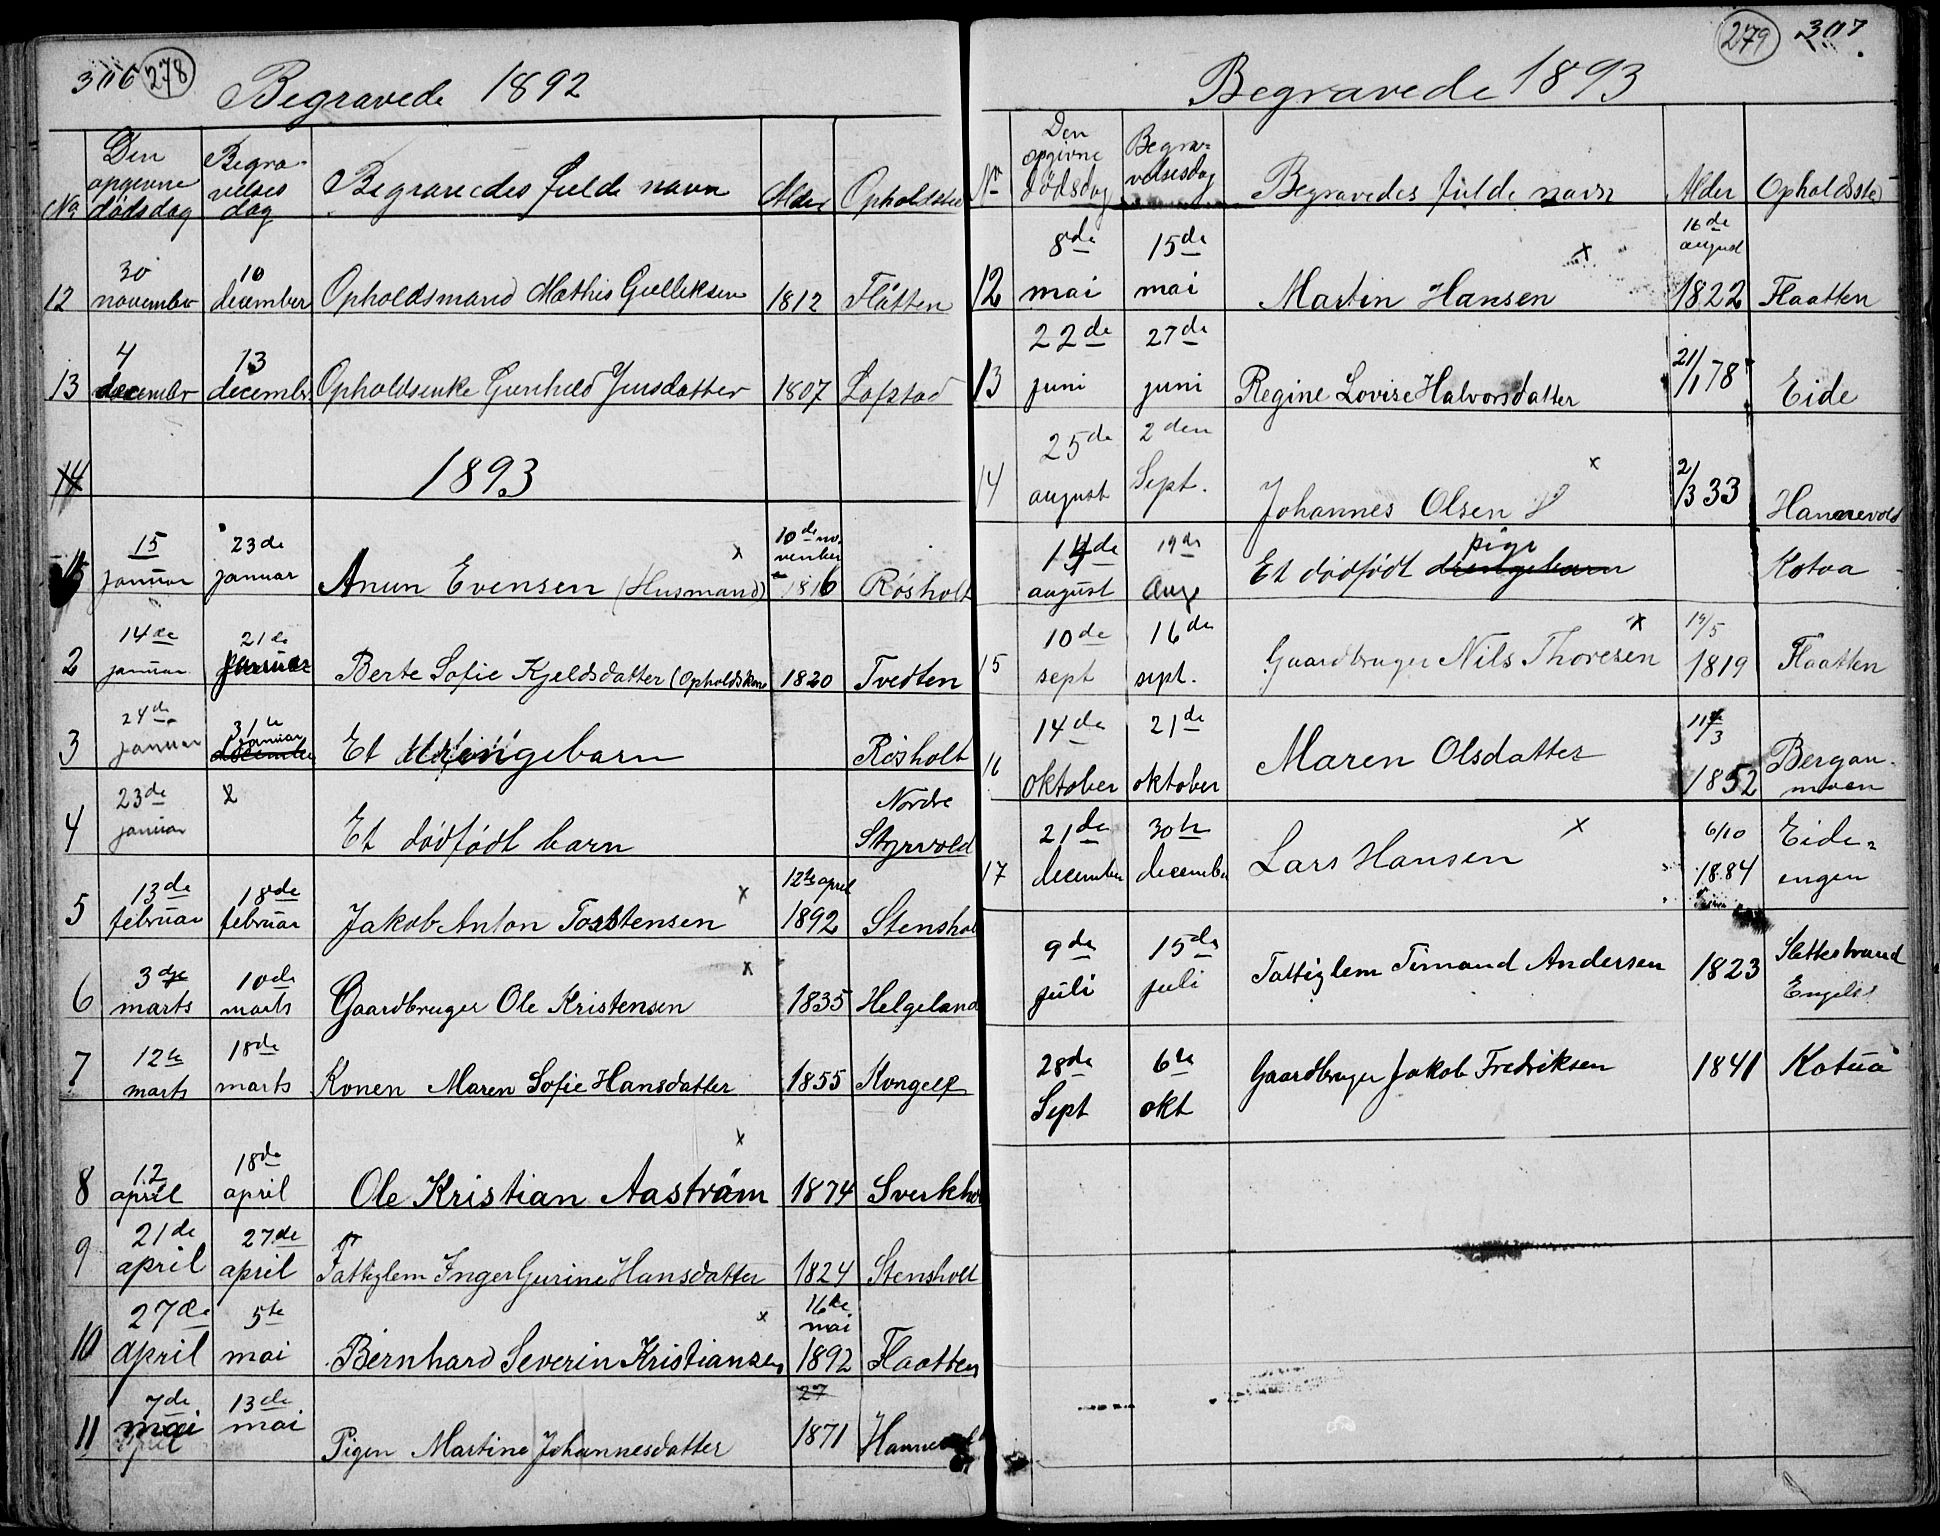 306 278
Begravede 1892
No Den opgivne dödsdag Begravelses dag Begravedes fulde navn Alder Opholdsted
12 30 november 10 december Opholdsmand Mathis Gulliksen 1812 Flåtten
13 4 december 13 december Opholdsenke Gunhild Jensdatter 1807 Lofstad
14
1893
1 15 januar 23de januar Anun Evensen (Husmand) x 10de november 1816 Rösholt
2 14de januar 21de januar Berte Sofie Kjeldsdatter (Opholdskone 1820 Tvedten
3 24de januar 31te januar december Et drengebarn Rösholt
4 23de januar x Et dödfödt barn Nordre Styrvold
5 13de februar 18de februar Jakob Anton Torstensen x 12te april 1892 Stenshol
6 3dje marts 10de marts Gaardbruger Ole Kristensen x 1835 Helgeland
7 12te marts 18de marts Konen Maren Sofie Hansdatter 1855 Kongelf
8 12 april 18de april Ole Kristian Aaström x 1874 Sverkho
9 21de april 27de april Fattiglem Inger Gurine Hansdatter 1824 Stensholt
10 27de april 5te mai Bernhard Severin Kristiansen x 16de mai 1892 Flaatten
11 7de mai april 13de mai Pigen Martine Johannesdatter 27 1871 Hannevold
279 307
Begravede 1893
No Den opgivne dödsdag Begravelsesdag Begravedes fulde navn Alder Opholdssted
12 8de mai 15de mai Martin Hansen x 16de august 1822 Flaatten
13 22de juni 27de juni Regine Lovise Halvorsdatter 21/1 78 Eide
14 25de august 2den Sept. Johannes Olsen x 2/3 33 Hannevold
14de august 19de Aug Et dödfödt drengebarn pige Kotoa
15 10de sept 16de sept. Gaardbruger Nils Thoresen x 19/5 1819 Flaatten
16 14de oktober 21de oktober Maren Olsdatter 11/3 1852 Berganmoen
17 21de december 30te december Lars Hansen x 6/10 1884 Eide-engen
9de juli 15de juli Fattiglem Timand Andersen 1823 Slettestrand
28de Sept 6te okt Gaardbruger Jakob Fredriksen 1841 Kotua